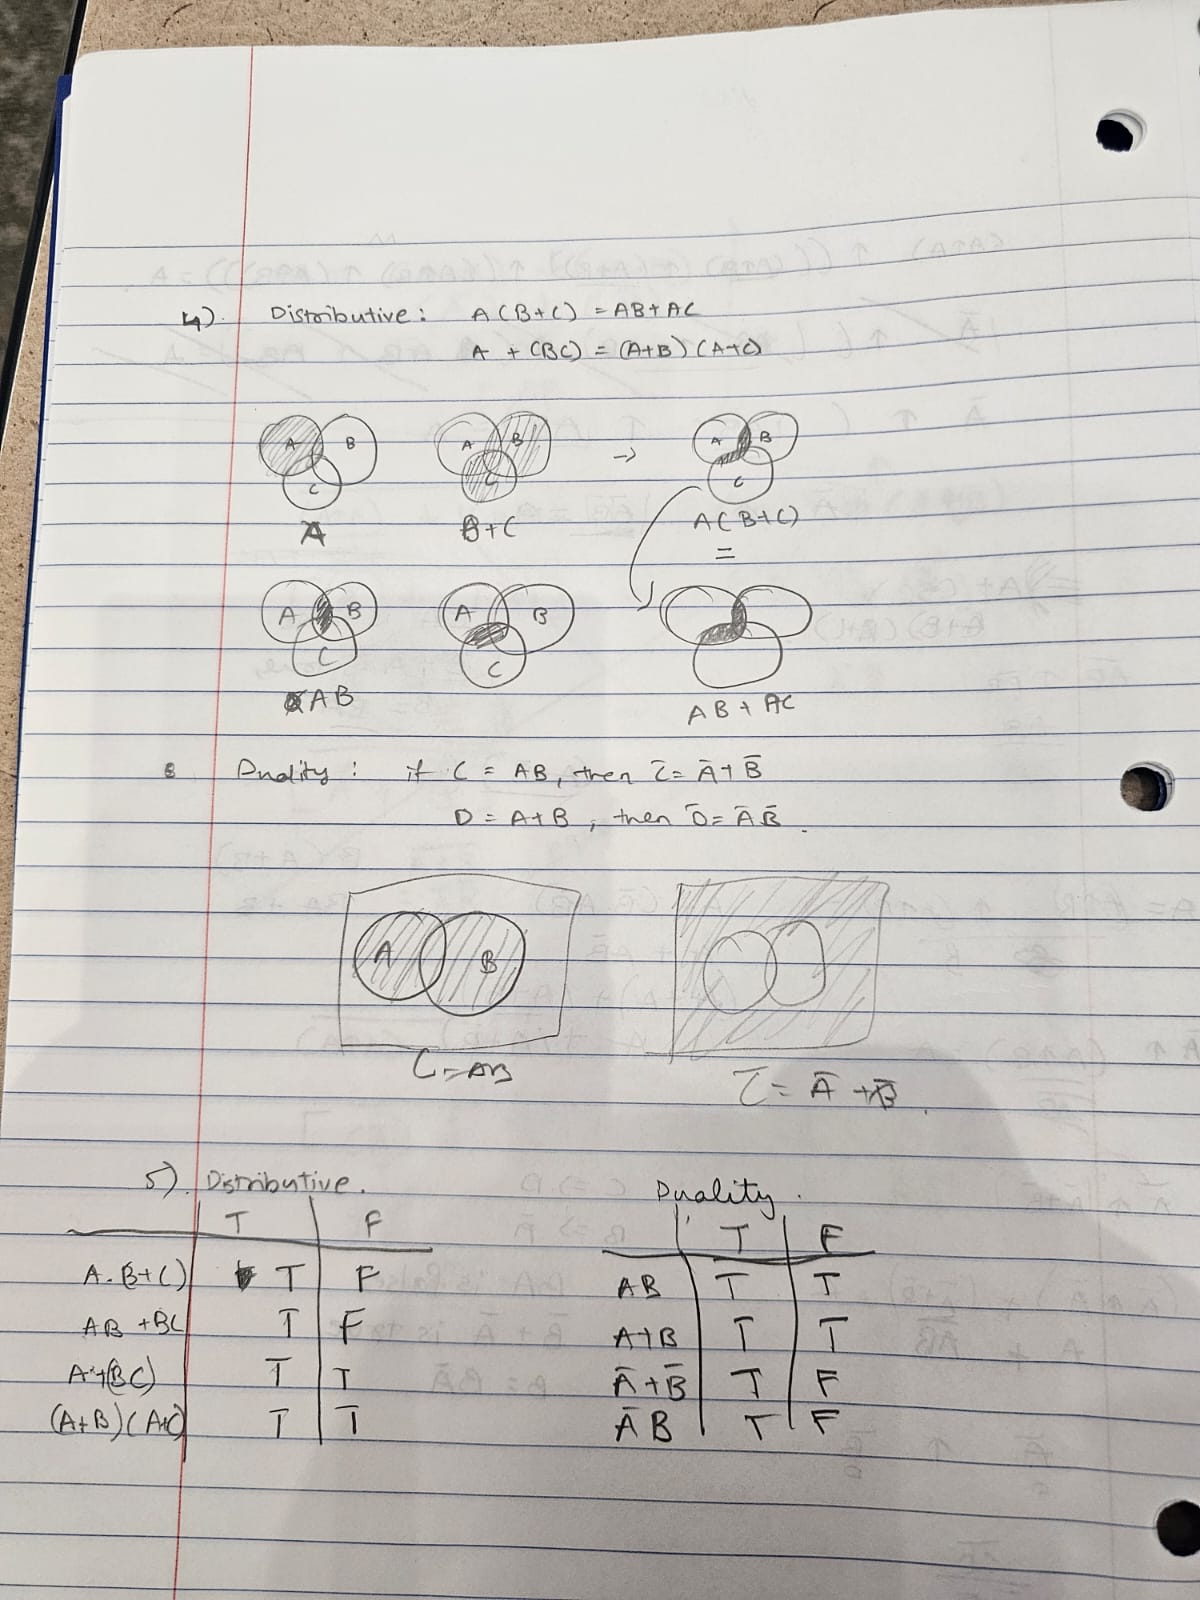 4). Distributive: A(B+C) = AB+AC
A + (BC) = (A+B)(A+C)
A B C
A B C
→
A B C
A
B+C
A(B+C)
=
A B C
A B C
AB
AB + AC
Duality: if C = AB, then C̄ = Ā + B̄
D = A+B, then D̄ = Ā B̄.
A B
C = AB
C̄ = Ā + B̄.
5). Distributive.
T F
A·B+C) T F
AB + BC T F
A+(BC) T T
(A+B)(A+C) T T
Duality.
T F
AB T T
A+B T T
Ā+B̄ T F
Ā B T F